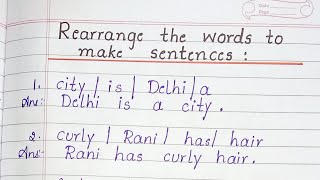 Rearrange the words to
make sentences :
1. city | is | Delhi | a
Ans:- Delhi is a city.
2. curly | Rani | has | hair
Ans:- Rani has curly hair.